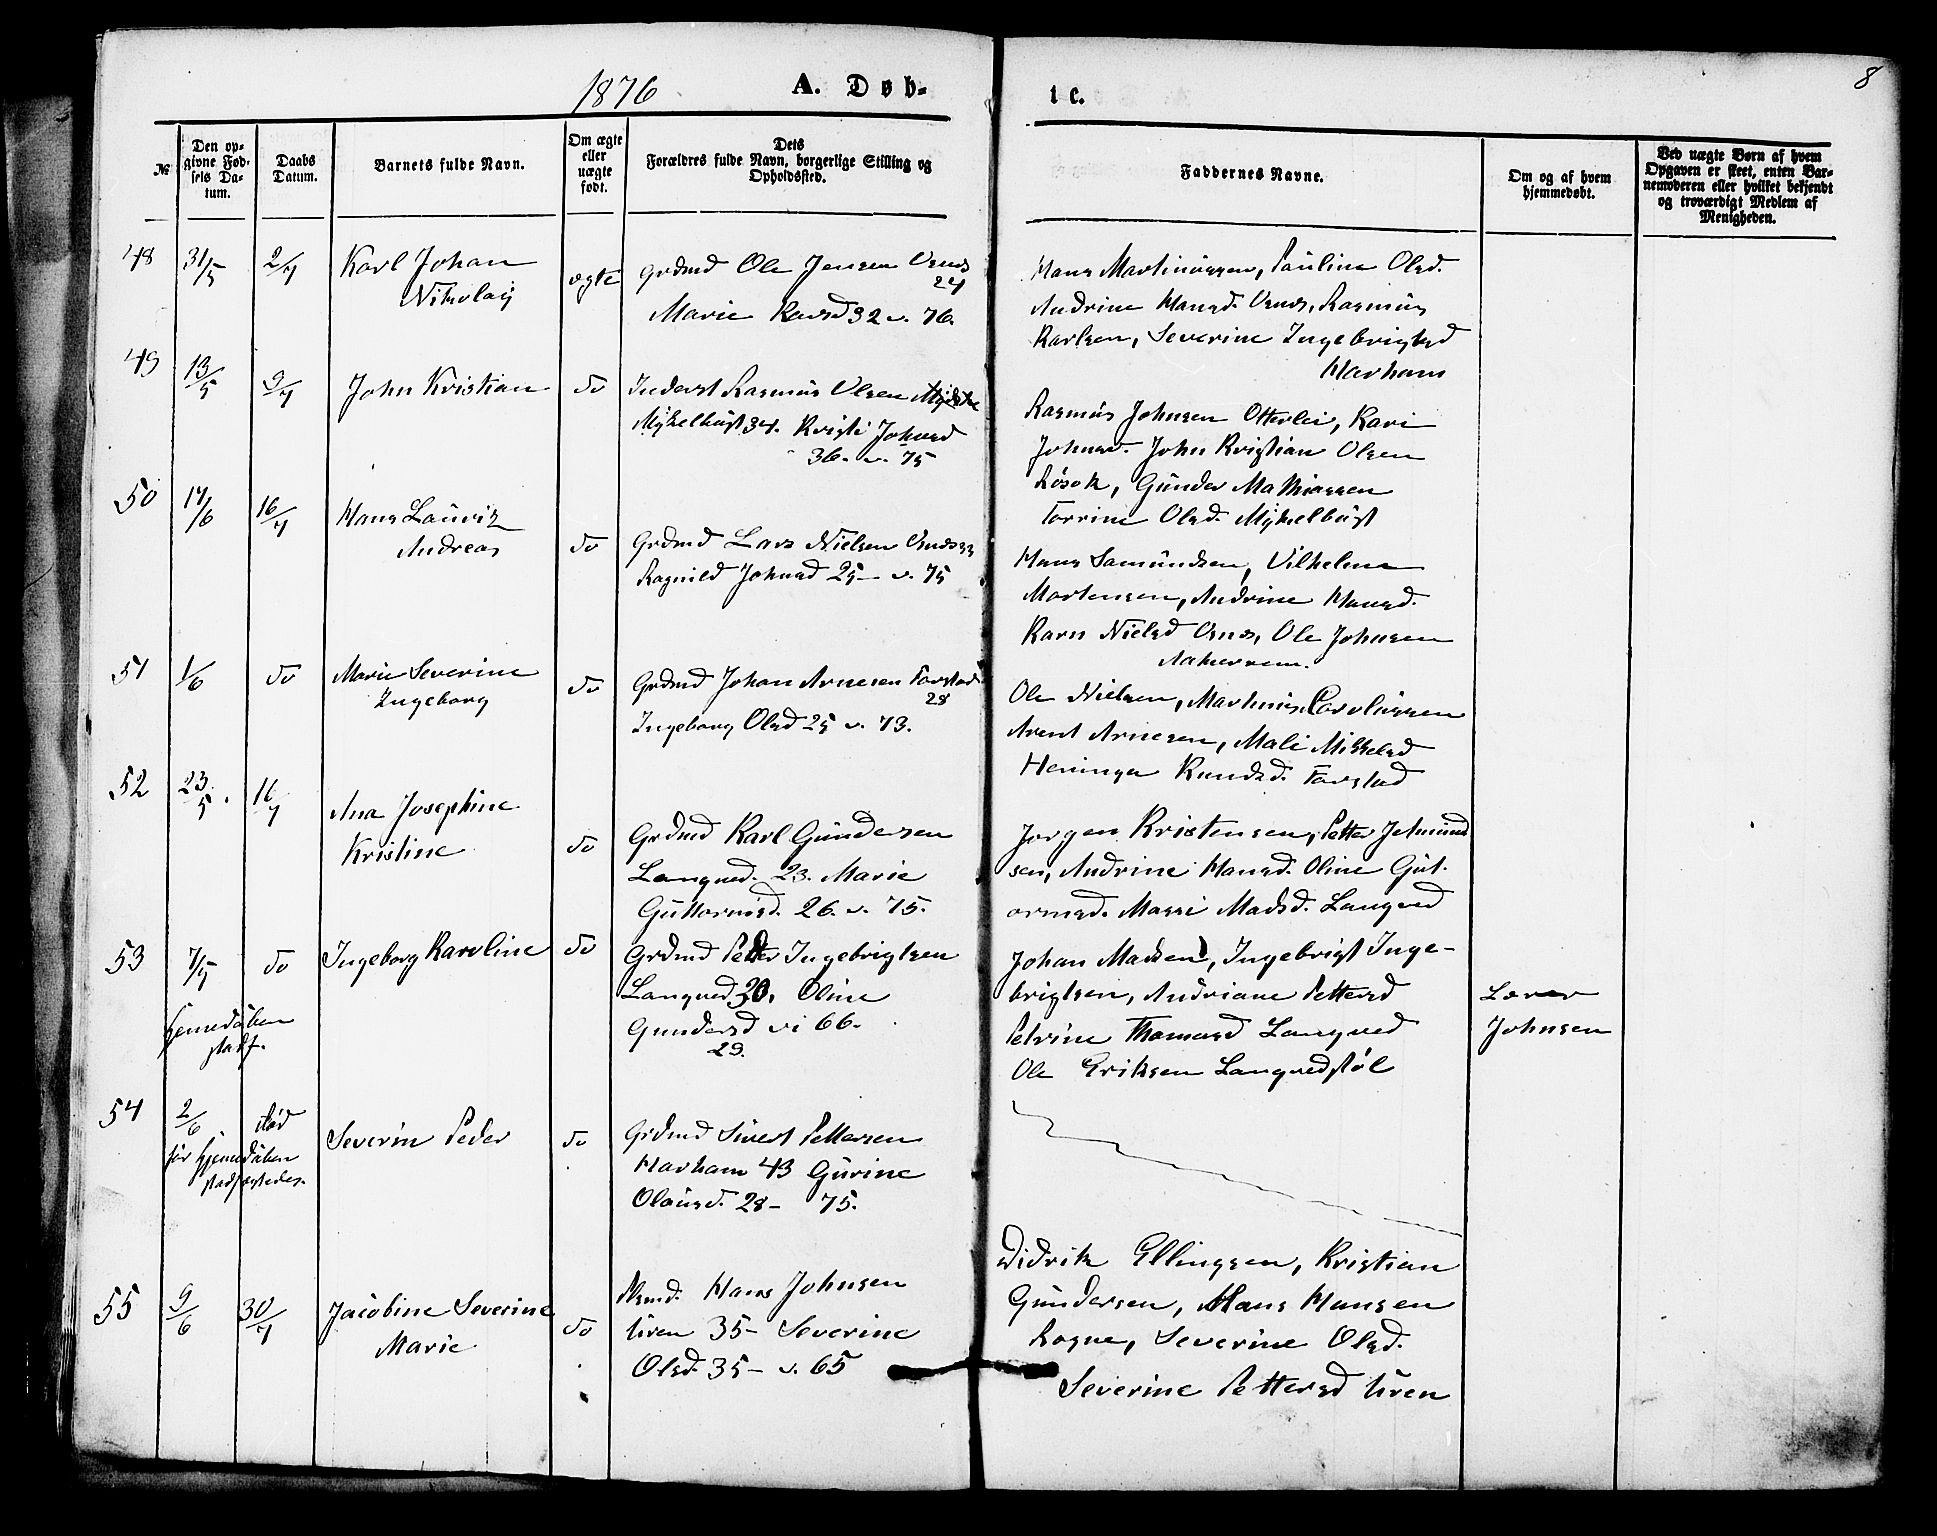 1876 A. Døb- te. 8
№
Den op-
givne Fød-
sels Da-
tum.
Daabs
Datum.
Barnets fulde Navn.
Om ægte
eller
uægte
født.
Dets
Forældres fulde Navn, borgerlige Stilling og
Opholdssted.
Faddernes Navne.
Om og af hvem
hjemmedøbt.
Ved uægte Børn af hvem
Opgaven er skeet, enten Bar-
nemoderen eller hvilket bekjendt
og troværdigt Medlem af
Menigheden.
48 31/5 2/7 Karl Johan
Nikolaij
ægte
Grdmd Ole Jensen Ven
24
Marie Karsd 32 v. 76.
Hans Martinussen, Pauline Olsd.
Andrine Hansd. Rasmus
Karlsen, Severine Ingebrigtsd
Havham
49 13/5 9/7 John Kristian do
Inderst Rasmus Olsen
Myhelbust 34. Kristi Johnsd
36. v. 75
Rasmus Johnsen Otterlei, Kari
Johnsd. John Kristian Olsen
Røsok, Gunder Mathiassen
Torrine Olsd. Myhelbust
50 17/6 16/7 Hans Lauritz
Andreas
do
Grdmd Lars Nielsen 33
Ragnild Johnsd 25 – v. 75
Hans Samundsen, Vilhelm
Mortensen, Andrine Hansd.
Karn Nielsd Ole Johnsen
Aakerrem.
51 1/6 do Marie Severine
Ingeborg
do
Grdmd Johan Arnesen Farstad
28
Ingeborg Olsd 25 v. 73.
Ole Nielsen, Martinus Carolussen
Arent Arnesen, Mali Mikkelsd
Heninga Knudsd. Farstad
52 23/5. 16/7 Ana Josephine
Kristine
do
Grdmd Karl Gundersen
Langved. 23. Marie
Guttormsd. 26. v. 75.
Jorgen Kristensen, Petter Jetmund
sen, Andrine Hansd. Oline Gut.
ormsd. Massi Madsd. Langved
53 7/5 do Ingeborg Karoline do
Grdmd Petter Ingebrigtsen
Langved 30, Oline
Gundersd vi 66.
29.
Johan Madsen, Ingebrigt Inge-
brigtsen, Andriane Pettersd
Petrine Thomasd Langved
Ole Eriksen Langvedstøl
Lærer
Johnsen
hjemmedåben
stadf.
54 2/6 død
før hjemmedåben
stadfæstedes.
Severin Peder do
Grdmd Sivert Pettersen
Havham 43 Gurine
Olausd. 28 – 75.
55 9/6 30/7 Jacobine Severine
Marie
do
Hsmd. Hans Johnsen
Uren 35 – Severine
Olsd. 35 – v. 65
Didrik Ellingsen, Kristian
Gundersen, Hans Hansen
Rogne, Severine Olsd.
Severine Pettersd Uren